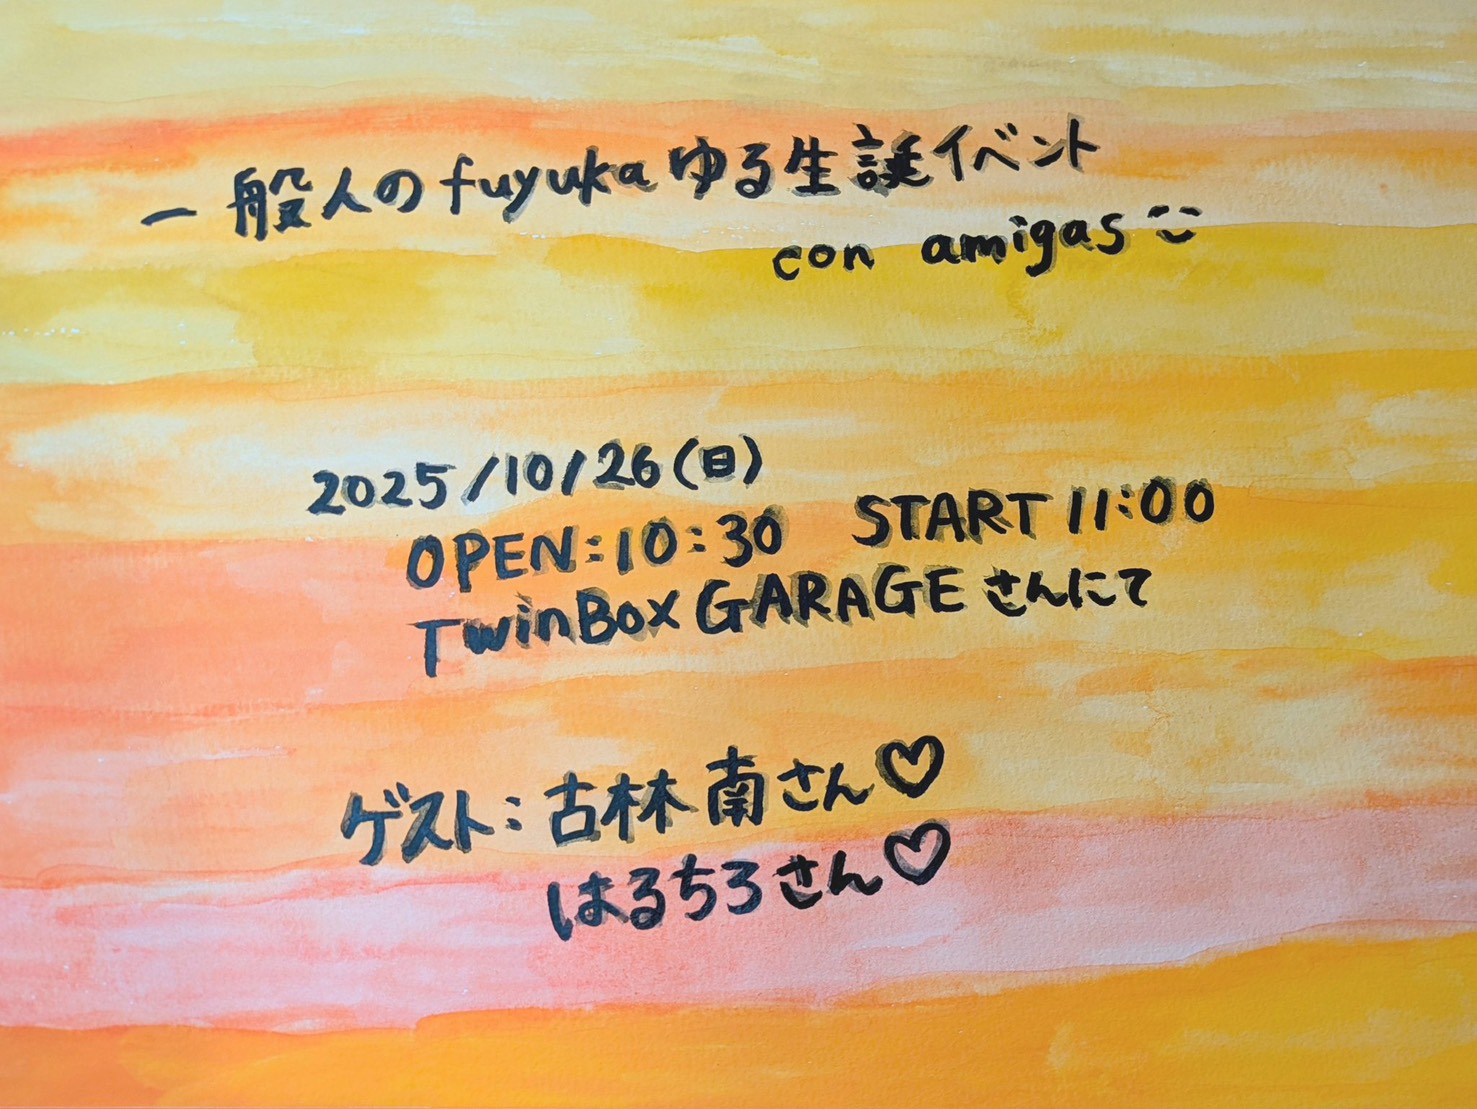 一般人のfuyukaゆる生誕イベント
con amigas
2025/10/26(日)
OPEN:10:30 START 11:00
TwinBox GARAGEさんにて
ゲスト:古林南さん♡
はるちろさん♡